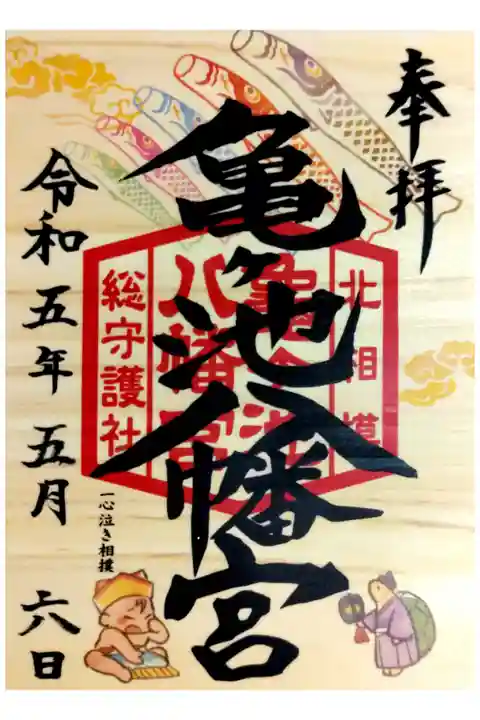 奉拝
北相模
亀ヶ池八幡宮
亀ヶ池
八幡宮
総守護社
一心泣き相撲
令和五年五月六日